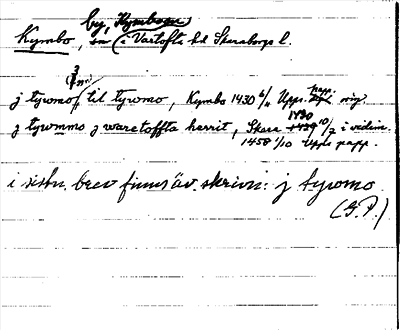 by, Kymbo sn
Kymbo, i Vartofta hd Skaraborgs l.
j tywmo til tywmo, Kymbo 1430 6/11 Upps. papp. orig.
j tywmmo j waretoffta harrit, Skara 1430 10/7 i vidim.
1458 1/10 Upps papp.
i sistn. brev finns äv skrivn: j tywmo
(G. P.)